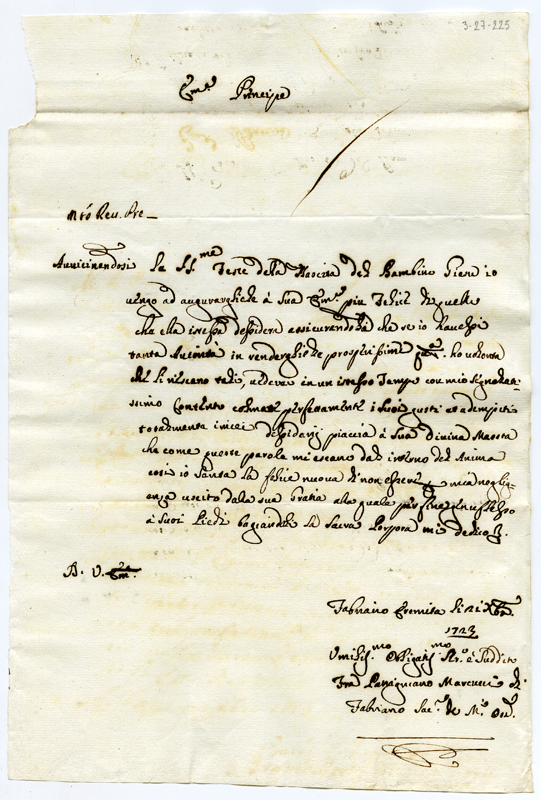 3-27-225
Em.º Principe
Mtó Reu. Pre
Auuicinandosi le SS.me Feste della Nascita del Bambino Giesu io
uengo ad augurarghiele à Sua Em.ª piu felici di quelle
che ella istessa desidera assicurandola che se io hauessi
tanta Autorità in renderghiele prosperissime ho uolontà
che li riescano tali, uederei in un istesso Tempo con mio signolar-
issimo Contento colmati perfettamente i suoi gusti et adempiti
totalmente i miei desiderij piaccia à Sua Diuina Maestà
che come queste parole mi escano dal interno del Anima
cosi io senta la felice nuoua di non essere p mia neglig-
enza uscito dalla sua Gratia alla quale per fine
à suoi Piedi bagiandoli la Sacra Porpora mi dedico
D. V. Em.
Fabriano Eremita li 21 Xbre
1723
Umiliss.mo Obligatiss.mo Ser.º e Suddito
Fra Marcucci di
Fabriano Sac.e de M.i Oss.